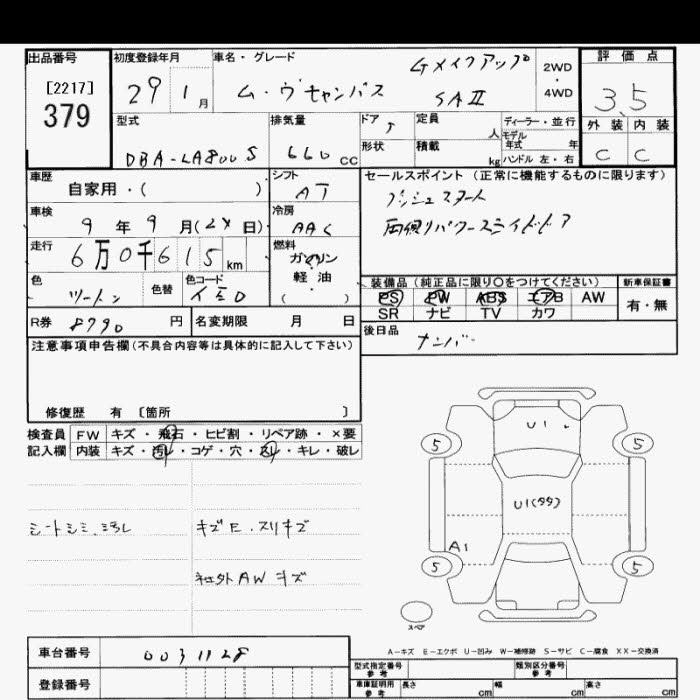 出品番号
[2217]
379
初度登録年月
29 1 月
車名・グレード
ム・ヴキャンバス
Gメイクアップ
SAⅡ
2WD
4WD
評 価 点
3.5
外 装 内 装
C C
型式
DBA-LA800S
排気量
660 cc
ドア 5
形状
定員
人
積載
kg
ディーラー・並行
モデル
年式 年
ハンドル 左・右
車歴
自家用・( )
シフト
AT
車検
9 年 9 月(24 日)
冷房
AAC
走行
6万0千615 km
燃料
ガソリン
軽 油
( )
色
ツートン
色替
色コード
R券 8790 円
名変期限 月 日
セールスポイント (正常に機能するものに限ります)
プッシュスタート
両側パワースライドドア
装備品 (純正品に限り〇をつけてください)
PS PW ABS エアB AW
SR ナビ TV カワ
新車保証書
有・無
後日品
ナンバー
注意事項申告欄 (不具合内容等は具体的に記入して下さい)
修復歴 有 〔箇所 〕
検査員
記入欄
FW キズ・飛石・ヒビ割・リペア跡・×要
内装 キズ・汚レ・コゲ・穴・スレ・キレ・破レ
シートシミ、汚レ
キズE、スリキズ
社外AWキズ
U1
5 5
U1(タタ)
A1
5 5
スペア
A−キズ E−エクボ U−凹み W−補修跡 S−サビ C−腐食 XX−交換済
車台番号 0031128
登録番号
型式指定番号
参考
類別区分番号
参考
車庫証明用
参考
長さ cm 幅 cm 高さ cm